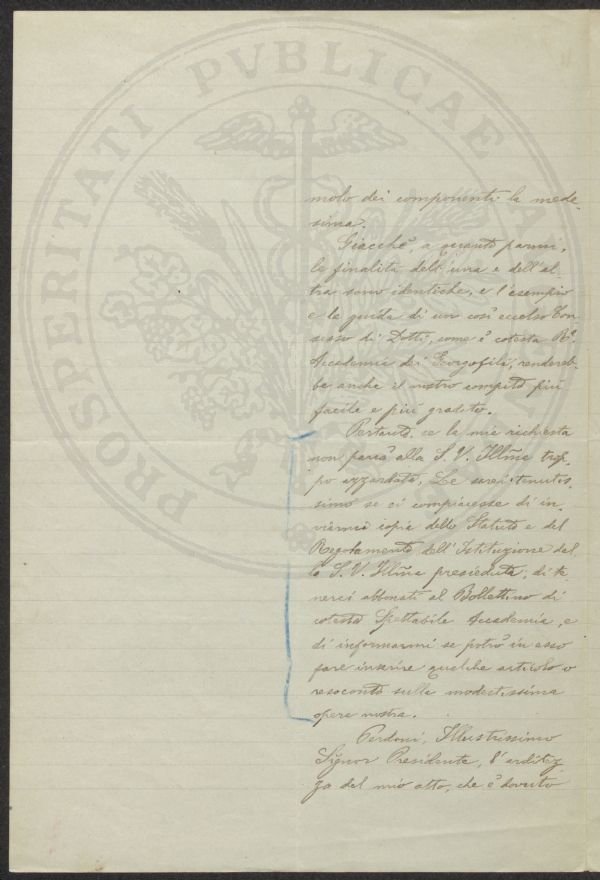 molo dei componenti la mede-
sima.
Giacchè, a quanto parmi,
le finalità dell'una e dell'al-
tra sono identiche, e l'esempio
e la guida di un così eccelso Con
sesso di Dotti, come è cotesta Rª
Accademia dei Georgofili, rendereb-
be anche il nostro compito più
facile e più gradito.
Pertanto, se la mia richiesta
non parrà alla S. V. Illñia trop-
po azzardata, Le sarei tenutis-
simo se si compiacesse di in-
viarmi copia dello Statuto e del
Regolamento dell'Istituzione del
la S. V. Illñia presieduta, di te
nerci abbonati al Bollettino di
cotesta Spettabile Accademia, e
di informarmi se potrò in esso
fare inserire qualche articolo o
resoconto sulla modestissima
opera nostra.
Perdoni, Illustrissimo
Signor Presidente, l'arditez
za del mio atto, che è dovuto
PROSPERITATI PVBLICAE